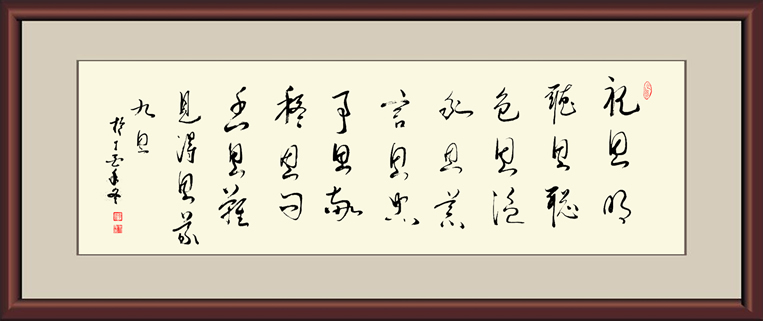 視思明
聽思聰
色思溫
貌思恭
言思忠
事思敬
疑思問
忿思難
見得思義
九思
於丁酉年冬